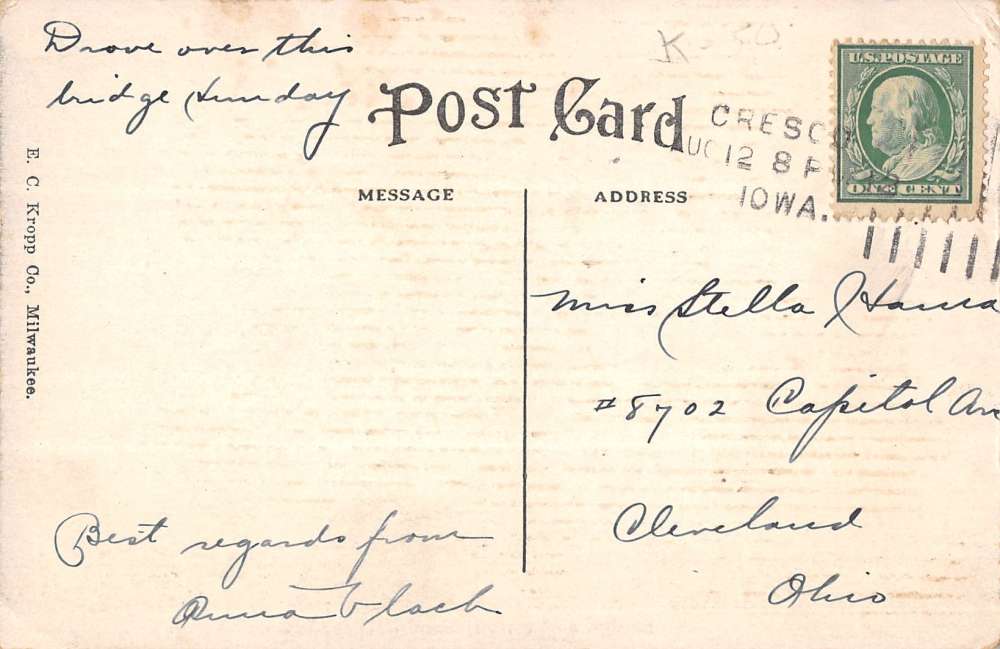 Drove over this
bridge Sunday
Post Card
MESSAGE
ADDRESS
U.S. POSTAGE
ONE CENT
CRESCO
AUG 12 8 P
IOWA.
E. C. Kropp Co., Milwaukee.
Miss Stella
#8702 Capitol Av
Cleveland
Ohio
Best regards from
Anna
K